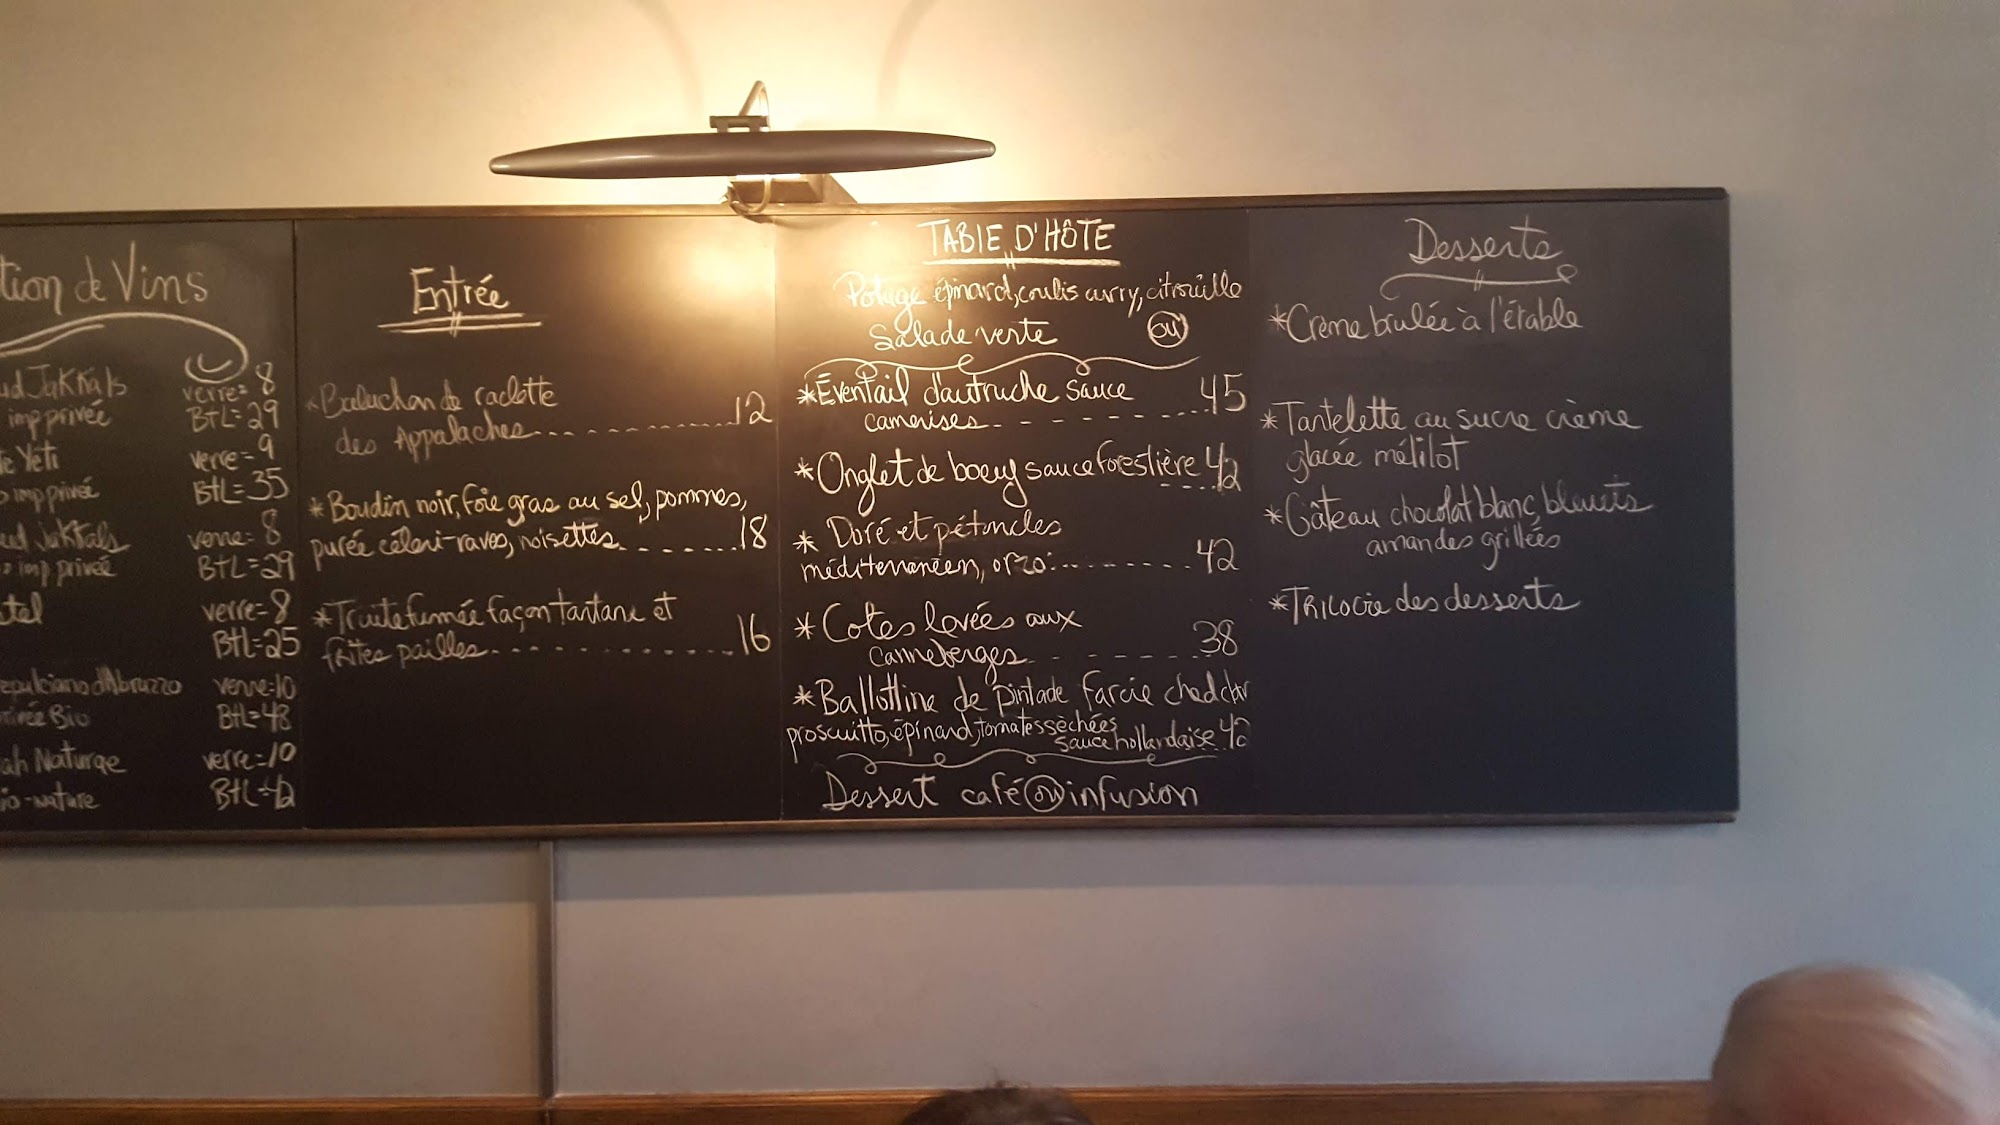 tion de Vins
ud Jakkals verre=8
imp privée BtL=29
Yéti verre=9
imp privée BtL=35
ud Jakkals verre=8
imp privée BtL=29
tel verre=8
BtL=25
epulciano d'Abruzzo verre=10
privée Bio BtL=48
ah Naturae verre=10
io-nature BtL=42
Entrée
*Baluchon de raclette
des Appalaches 12
*Boudin noir, foie gras au sel, pommes,
purée céleri-raves, noisettes 18
*Truite fumée façon tartare et
frites pailles 16
TABLE D'HÔTE
Potage épinard, coulis curry, citrouille
ou
Salade verte
*Éventail d'autruche sauce
camerises 45
*Onglet de boeuf sauce forestière 42
*Doré et pétoncles
méditerranéen, orzo 42
*Cotes levées aux
canneberges 38
*Ballottine de pintade farcie cheddar
proscuitto, épinard, tomates sèchées
sauce hollandaise 42
Dessert café ou infusion
Desserts
*Crème brulée à l'érable
*Tartelette au sucre crème
glacée mélilot
*Gâteau chocolat blanc, bleuets
amandes grillées
*Trilogie des desserts